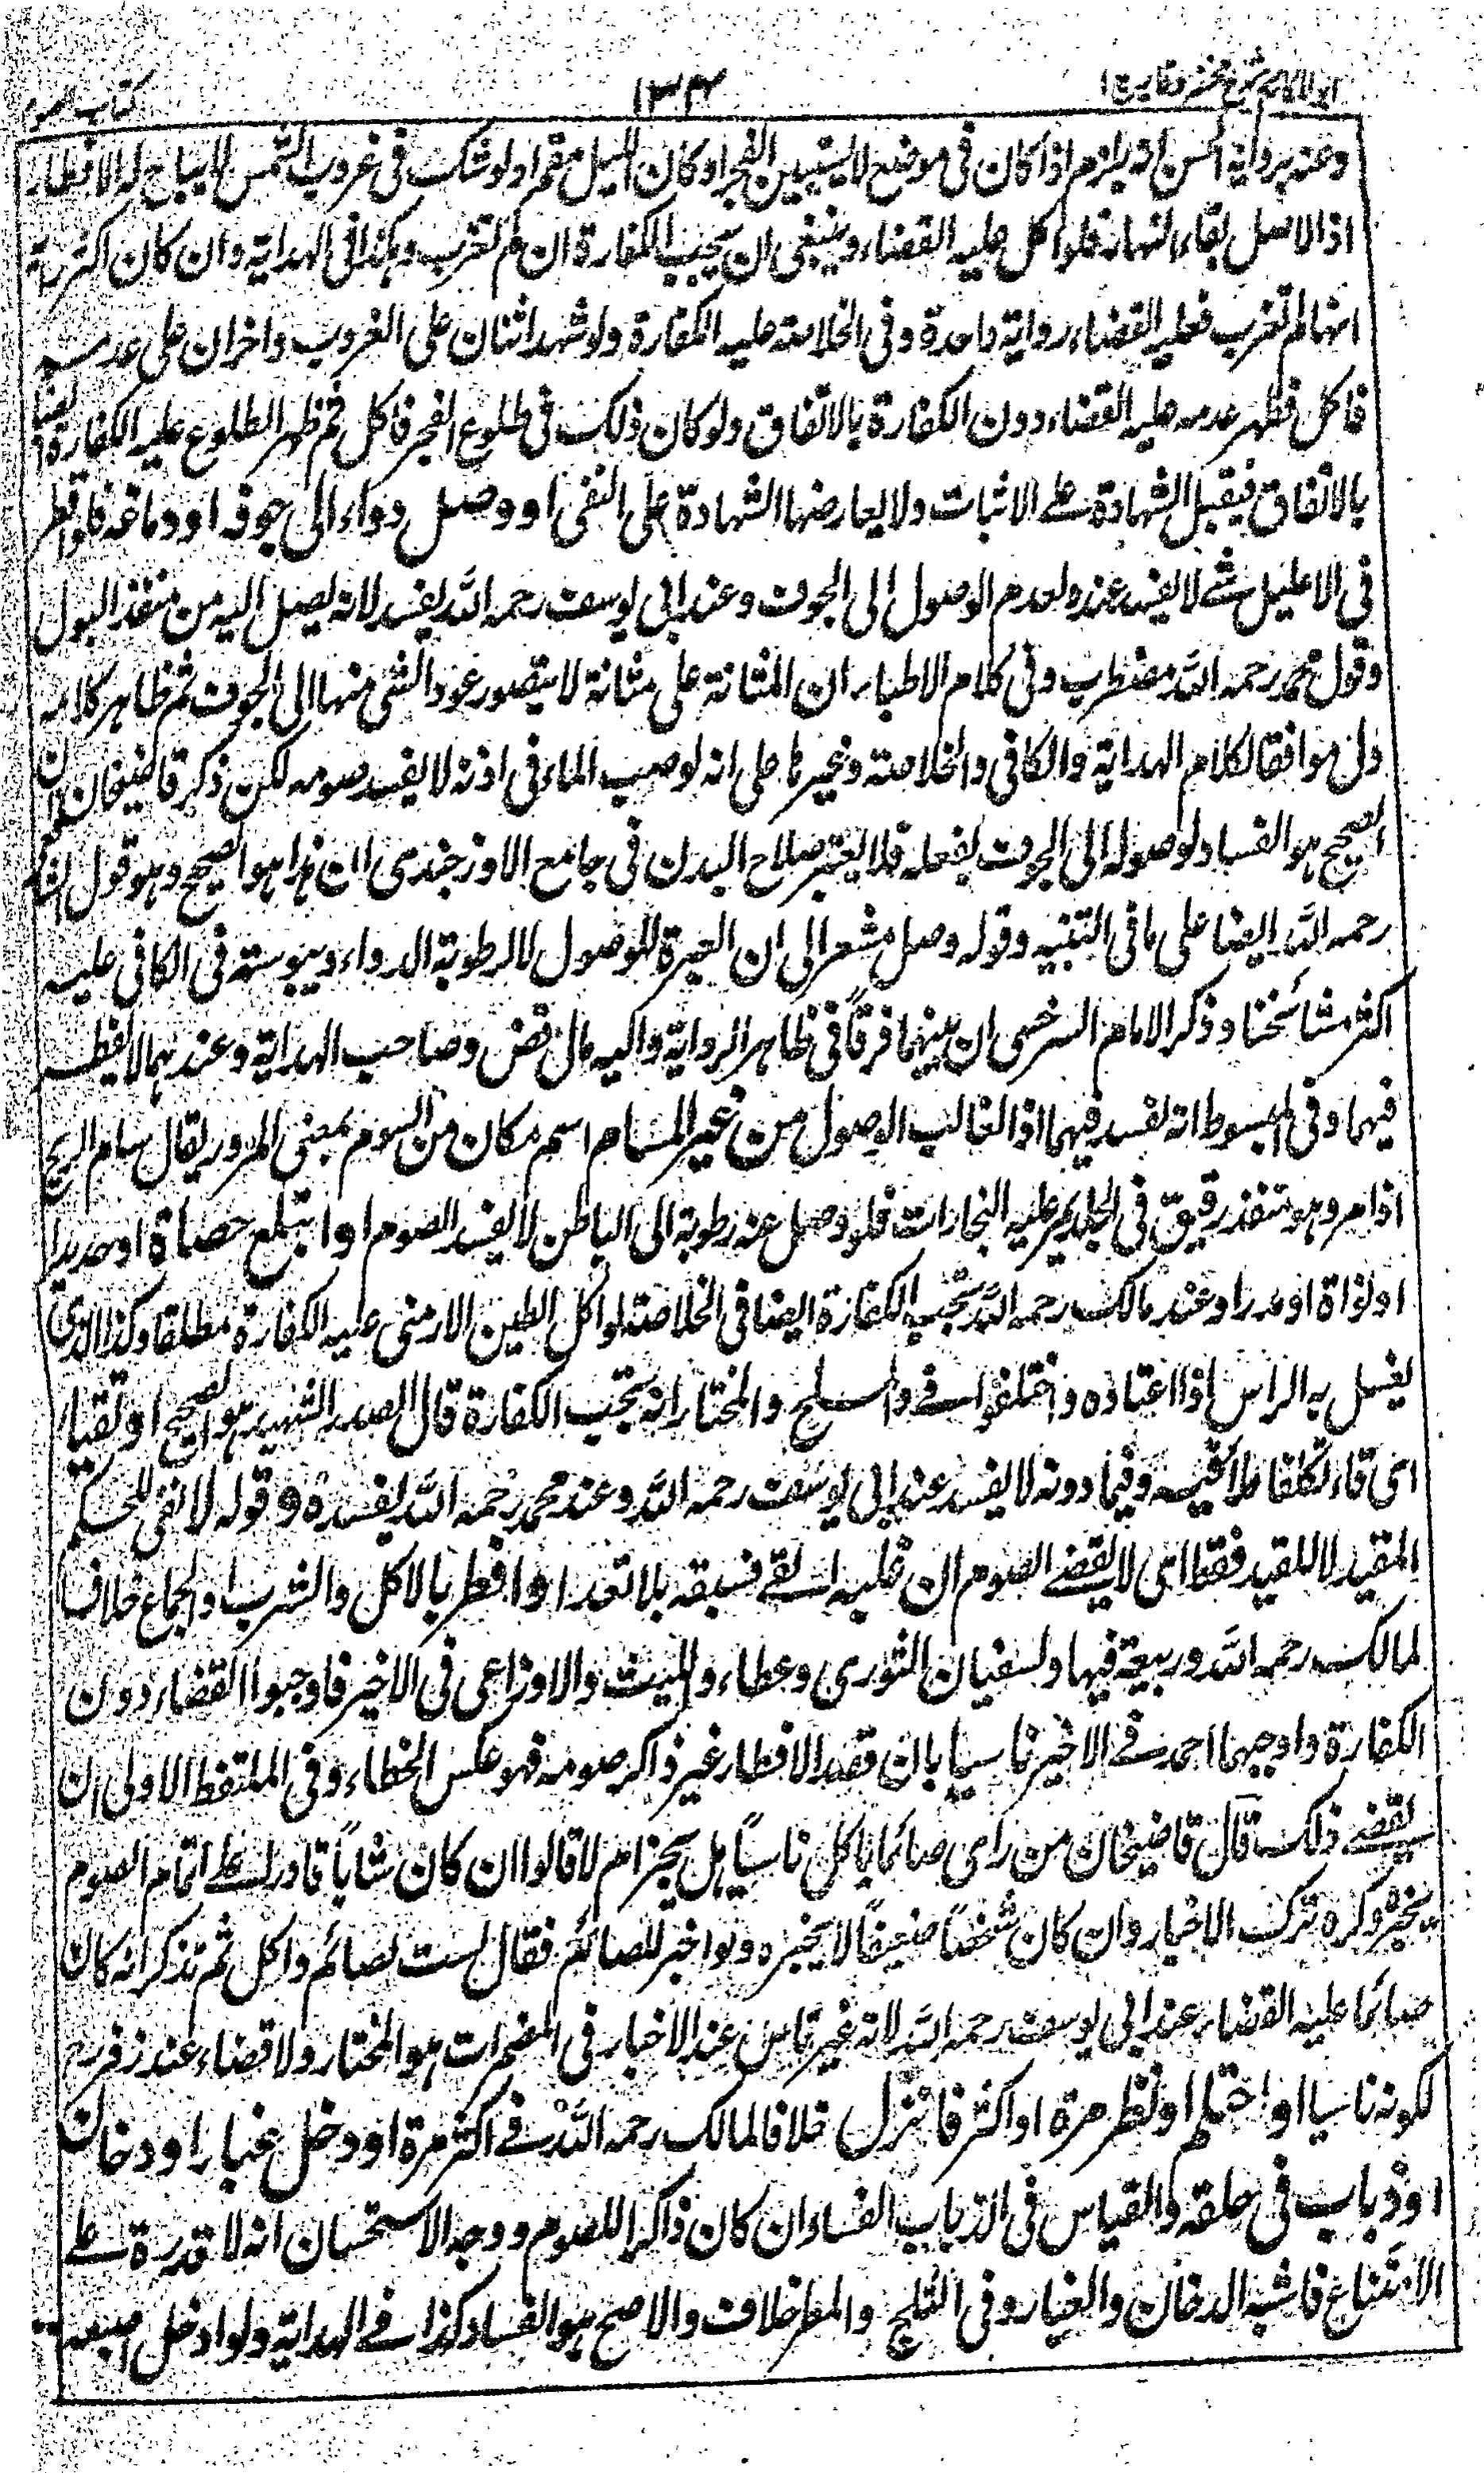 ابو المكارم شرح مختصر وقاية ج ا ١٣٤ كتاب الصوم
وعنه برواية الحسن انه يلزم اذا كان فى موضع لا يستبين الفجر او كان الليل مقمرا ولو شك فى غروب الشمس لا يباح له الافطار
اذ الاصل بقاء النهار فلو اكل عليه القضاء وينبغى ان يجب الكفارة ان لم تغرب وهكذا فى الهداية وان كان اكثر رايه
انها لم تغرب فعليه القضاء رواية واحدة وفى الخلاصة عليه الكفارة ولو شهد اثنان على الغروب واخران على عدمه
فاكل فظهر عدمه عليه القضاء دون الكفارة بالاتفاق ولو كان ذلك فى طلوع الفجر فاكل ثم ظهر الطلوع عليه الكفارة ايضا
بالاتفاق فيقبل الشهادة على الاثبات ولا يعارضها الشهادة على النفى او وصل دواء الى جوفه او دماغه فلو اقطر
فى الاحليل شئ لا يفسد عنده لعدم الوصول الى الجوف وعند ابى يوسف رحمه الله يفسد لانه يصل اليه من منفذ البول
وقول محمد رحمه الله مضطرب وفى كلام الاطباء ان المثانة على مثانة لا يتصور عود الشئ منها الى الجوف ثم ظاهر كلامه
دل موافقا لكلام الهداية والكافى والخلاصة وغيرها على انه لو صب الماء فى اذنه لا يفسد صومه لكن ذكر قاضيخان ان
الصحيح هو الفساد لوصوله الى الجوف بفعله فلا يعتبر صلاح البدن فى جامع الاوزجندى ان هذا هو الصحيح وهو قول الشافعى
رحمه الله ايضا على ما فى التنبيه وقوله وصل مشعر الى ان العبرة للوصول لا لرطوبة الدواء ويبوسته فى الكافى عليه
اكثر مشائخنا وذكر الامام السرخسى ان بينهما فرقاً فى ظاهر الرواية واليه مال قض وصاحب الهداية وعندهما لا يفطر
فيهما وفى المبسوط انه يفسد فيهما اذ الغالب الوصول من غير المسام اسم مكان من السوم بمعنى المرور يقال سام الريح
اذا مر وهو منفذ رقيق فى الجلد يمر عليه البخارات فلو وصل عنه رطوبة الى الباطن لا يفسد الصوم او ابتلع حصاة او حديدا
او نواة او مدرا وعند مالك رحمه الله يجب الكفارة ايضا فى الخلاصة لو اكل الطين الارمنى عليه الكفارة مطلقا وكذا الذى
يغسل به الراس اذا اعتاده واختلفوا فى والملح والمختار انه يجب الكفارة قال الصدر الشهيد هو الصحيح او تقيأ
اى قاء تكلفا ملأ فيه وفيما دونه لا يفسد عند ابى يوسف رحمه الله وعند محمد رحمه الله يفسده وقوله لا نفى للحكم
المقيد لا للقيد فقط اى لا يقضى الصوم ان غلبه القئ فسبقه بلا تعد او افطر بالاكل والشرب او الجماع خلافا
لمالك رحمه الله وربيعة فيها ولسفيان الثورى وعطاء والليث والاوزاعى فى الاخير فاوجبوا القضاء دون
الكفارة واوجبهما احمد فى الاخير ناسيا بان قصد الافطار غير ذاكر صومه فهو عكس الخطاء وفى الملتقط الاولى ان
يقضى ذلك قال قاضيخان من راى صائما ياكل ناسياً هل يخبره ام لا قالوا ان كان شاباً قادرا على اتمام الصوم
يخبره وكره ترك الاخبار وان كان شخصاً ضعيفاً لا يخبره ولو اخبر للصائم فقال لست بصائم واكل ثم تذكر انه كان
صائما عليه القضاء عند ابى يوسف رحمه الله لانه غير ناس عند الاخبار فى المضمرات هو المختار ولا قضاء عند زفر رح
لكونه ناسيا او احتلم او نظر مرة او اكثر فانزل خلافا لمالك رحمه الله فى اكثر مرة او دخل غبار او دخان
او ذباب فى حلقه والقياس فى الذباب الفساد ان كان ذاكرا للصوم ووجه الاستحسان انه لا قدرة على
الامتناع فاشبه الدخان والغبار وفى الثلج والمطر خلاف والاصح هو الفساد كذا فى الهداية ولو ادخل اصبعه